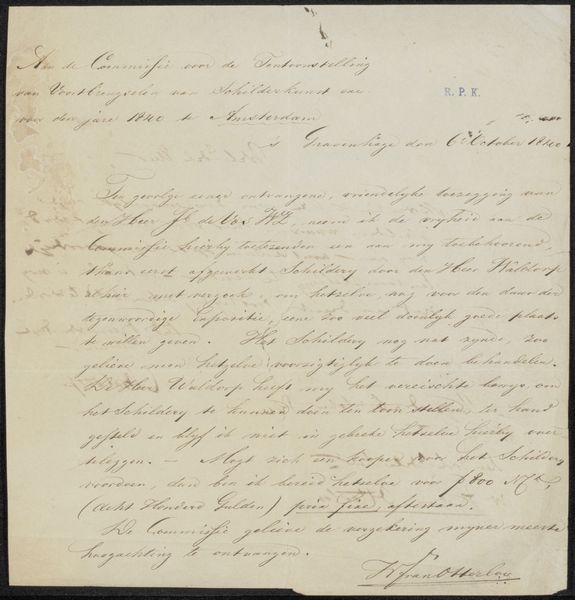 Aan de Commissie voor de Tentoonstelling
van Voortbrengselen van Schilderkunst enz
R. P. K.
voor den jare 1840 te Amsterdam
's Gravenhage den 6 October 1840
Ten gevolge eener ontvangene, vriendelijke toezegging van
den Heer Jb de Vos WZ, neem ik de vryheid aan de
Commissie hierby toetezenden een aan my toebehoorend,
thans eerst afgewerkt Schildery door den Heer Waldorp
alhier, met verzoek, om hetzelve, nog voor den duur der
tegenwoordige expositie, eene zoo veel doenlyk goede plaats
te willen geven. Het Schildery nog nat zynde, zoo
gelieve men hetzelve voorzigtiglyk te doen behandelen.
De Heer Waldorp heeft my het vereischte bewys, om
het Schildery te kunnen doen ten toon stellen, ter hand
gesteld en blyf ik niet in gebreke hetzelve hierby over
teleggen. — Mogt zich een kooper voor het Schildery
voordoen, dan ben ik bereid hetzelve voor ƒ 800
(Acht Honderd Gulden) prix fixe, aftestaan.
De Commissie gelieve de verzekering myner meeste
hoogachting te ontvangen.
van Otterloo